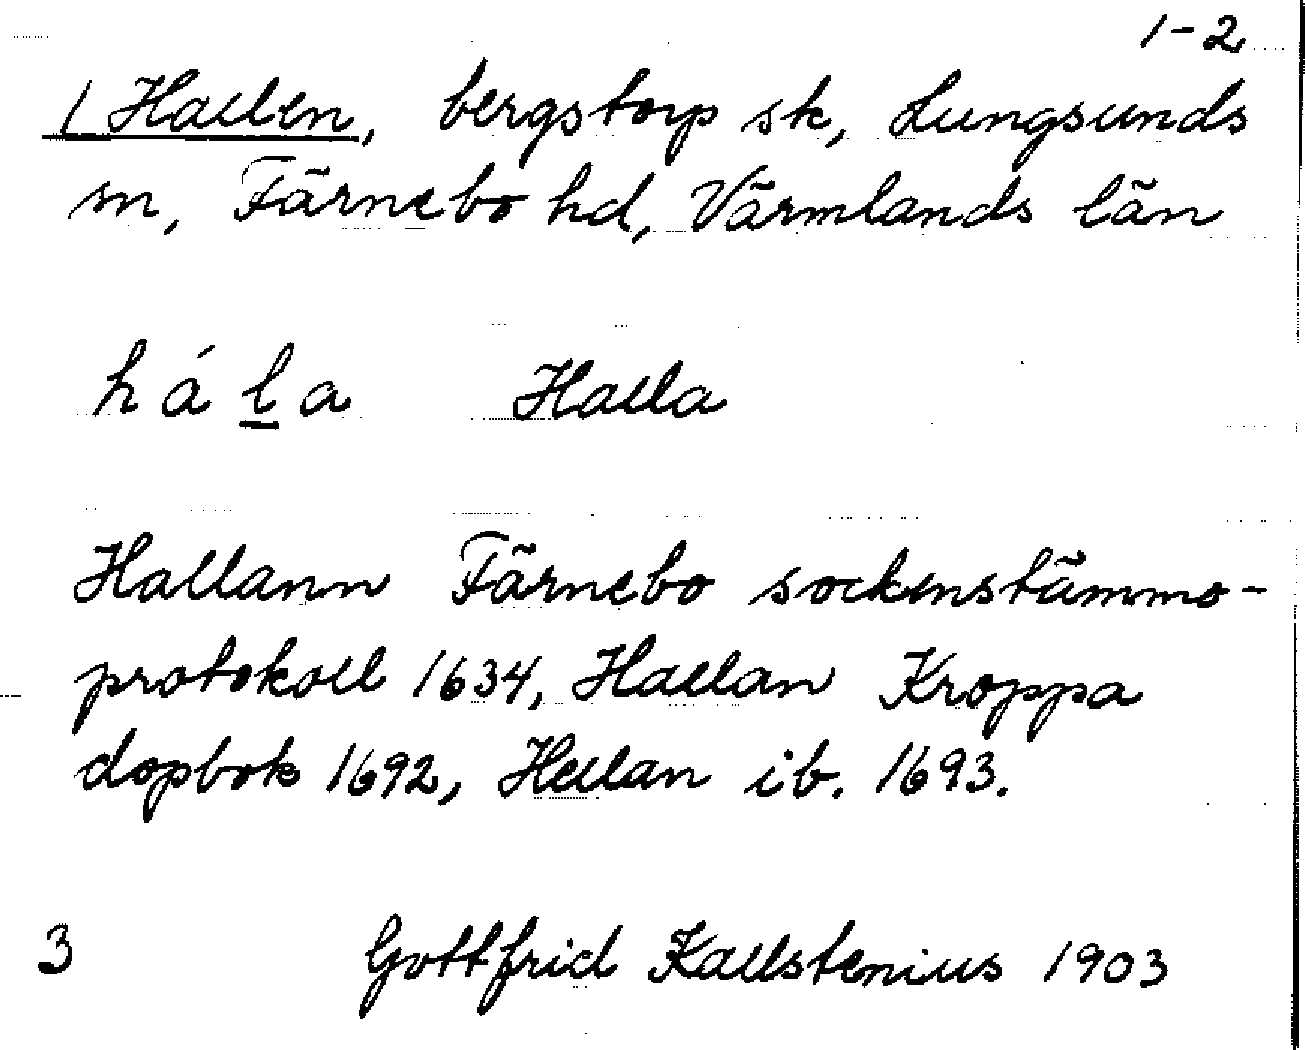 1-2
1 Hallen, bergstorp sk, Lungsunds
sn, Färnebo hd, Värmlands län
h á l a Halla
Hallann Färnebo sockenstämmo-
protokoll 1634, Hallan Kroppa
dopbok 1692, Hellan ib. 1693.
3 Gottfrid Kallstenius 1903